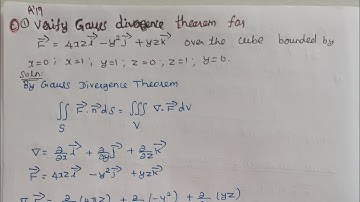 ① Verify Gauss divergence theorem for
F⃗ = 4xz i⃗ - y² j⃗ + yz k⃗ over the cube bounded by
x=0; x=1, y=1; z=0; z=1; y=0.
Soln:
By Gauss Divergence Theorem
∬ F⃗.n⃗ ds = ∭ ∇.F⃗ dV
S V
∇ = ∂/∂x i⃗ + ∂/∂y j⃗ + ∂/∂z k⃗
F⃗ = 4xz i⃗ - y² j⃗ + yz k⃗
∇.F⃗ = ∂ (4xz) + ∂ (-y²) + ∂ (yz)